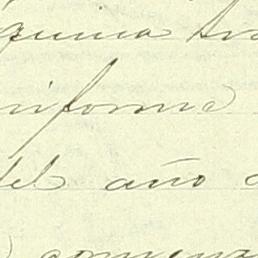 quina tra
niforme
del año
comienz